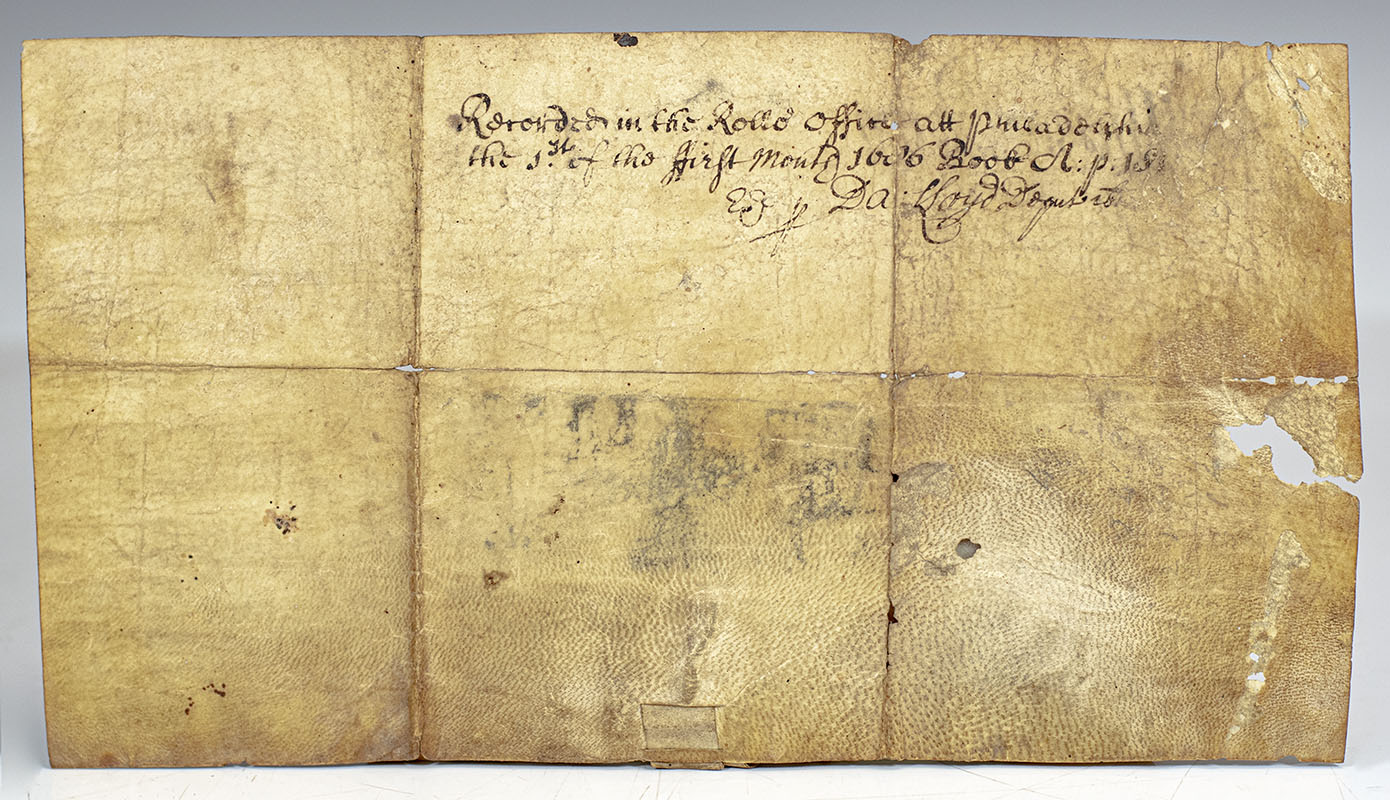 Recorded in the Rolls Office att Philadelphi
the 1st of the ffirst Month 1686 Book A: p: 15
Da: Lloyd Deput